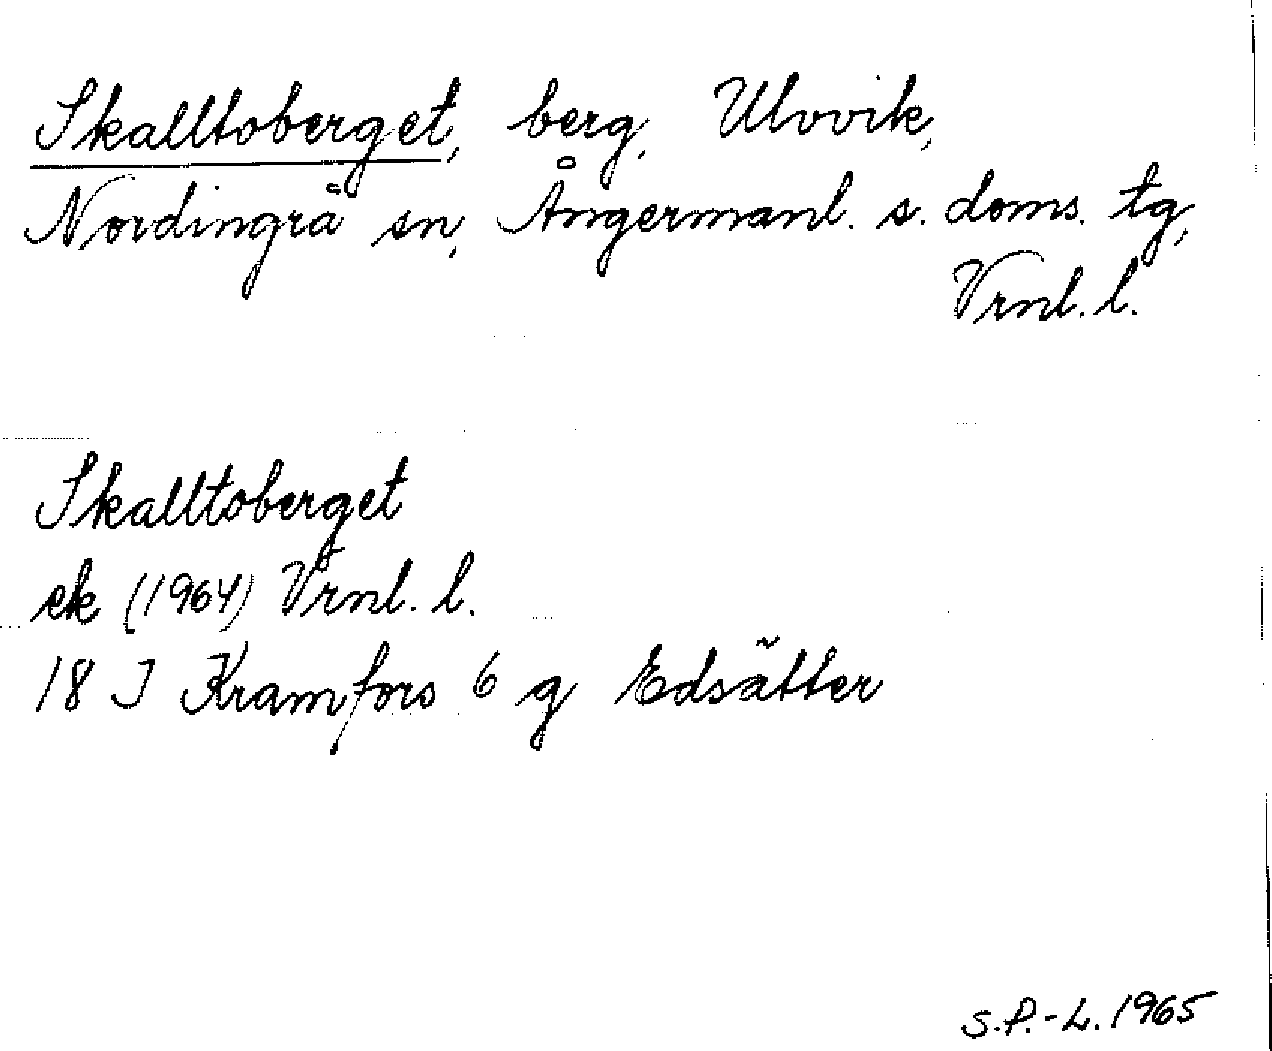 Skalltoberget, berg, Ulvvik,
Nordingrå sn, Ångermanl. s. doms. tg,
Vrnl. l.
Skalltoberget
ek (1964) Vrnl. l.
18 I Kramfors 6 g Edsätter
S.P.-L. 1965